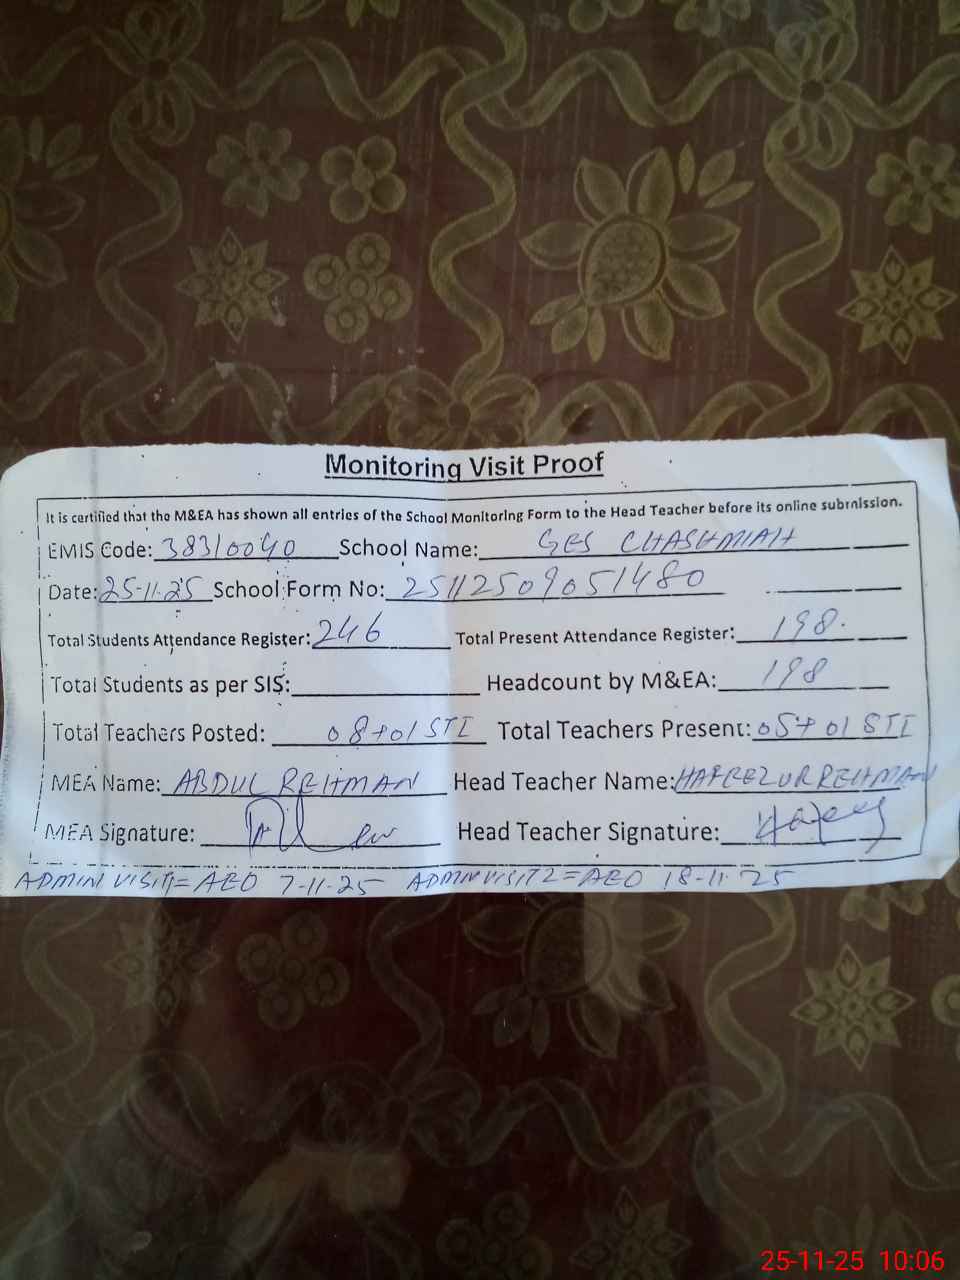 Monitoring Visit Proof
It is certified that the M&EA has shown all entries of the School Monitoring Form to the Head Teacher before its online submission.
EMIS Code: 38310040 School Name: GES CHASHMIAH
Date: 25-11-25 School Form No: 25112509051480
Total Students Attendance Register: 246 Total Present Attendance Register: 198.
Total Students as per SIS: Headcount by M&EA: 198
Total Teachers Posted: 08+01 STI Total Teachers Present: 05+01 STI
MEA Name: ABDUL REHMAN Head Teacher Name: HAFEEZ UR REHMAN
MEA Signature: Head Teacher Signature:
ADMIN VISIT1= AEO 7-11-25 ADMIN VISIT2= AEO 18-11-25
25-11-25 10:06